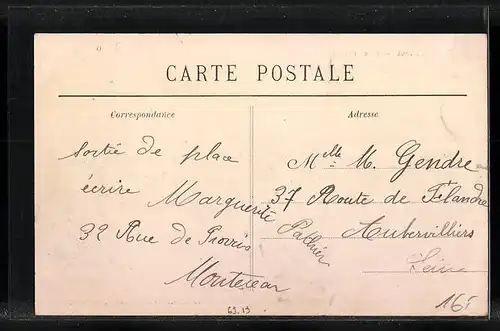 CARTE POSTALE
Correspondance
sortie de place
écrire Marguerite
32 Rue de Provins
Montereau
Adresse
Melle M. Gendre
37 Route de Flandre
Aubervilliers
Seine